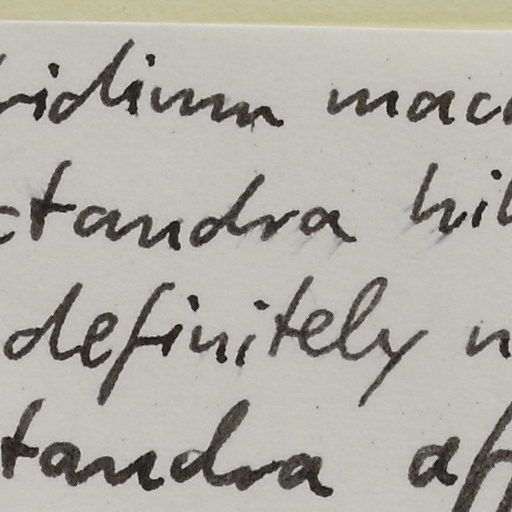 ridium mac
ctandra hil
definitely n
tandra af